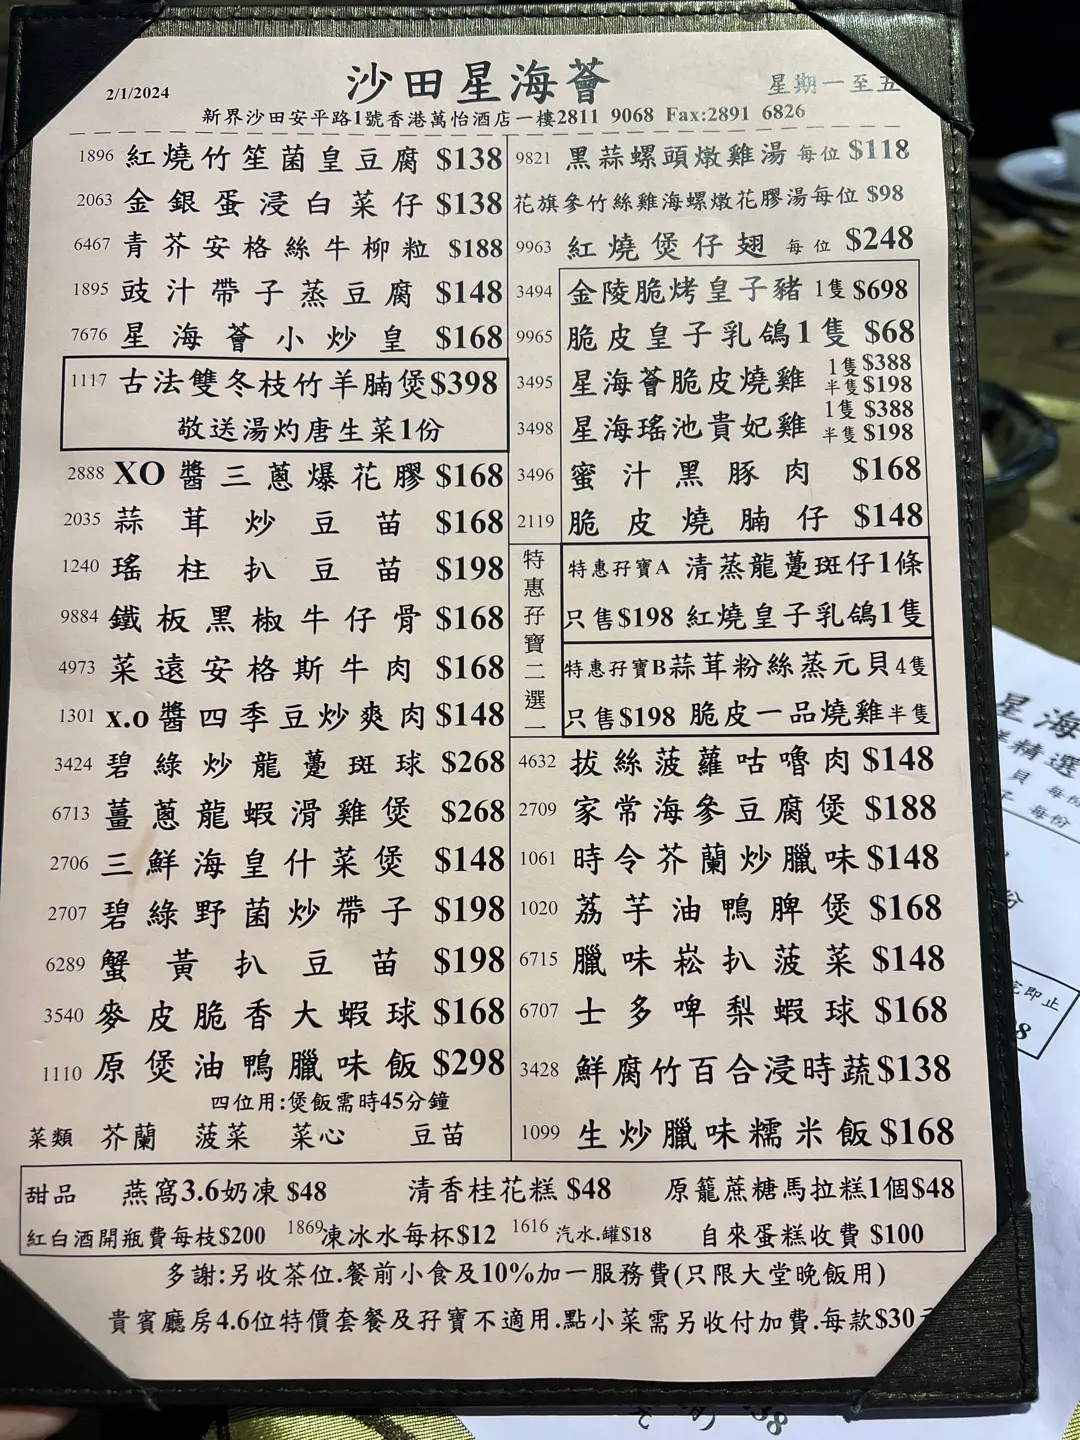 2/1/2024
沙田星海薈
星期一至五
新界沙田安平路1號香港萬怡酒店一樓2811 9068 Fax:2891 6826
1896 紅燒竹笙菌皇豆腐 $138
2063 金銀蛋浸白菜仔 $138
6467 青芥安格絲牛柳粒 $188
1895 豉汁帶子蒸豆腐 $148
7676 星海薈小炒皇 $168
1117 古法雙冬枝竹羊腩煲$398
敬送湯灼唐生菜1份
2888 XO醬三蔥爆花膠 $168
2035 蒜茸炒豆苗 $168
1240 瑤柱扒豆苗 $198
9884 鐵板黑椒牛仔骨 $168
4973 菜遠安格斯牛肉 $168
1301 x.o醬四季豆炒爽肉 $148
3424 碧綠炒龍躉斑球 $268
6713 薑蔥龍蝦滑雞煲 $268
2706 三鮮海皇什菜煲 $148
2707 碧綠野菌炒帶子 $198
6289 蟹黃扒豆苗 $198
3540 麥皮脆香大蝦球 $168
1110 原煲油鴨臘味飯 $298
四位用:煲飯需時45分鐘
菜類 芥蘭 菠菜 菜心 豆苗
9821 黑蒜螺頭燉雞湯 每位 $118
花旗參竹絲雞海螺燉花膠湯每位 $98
9963 紅燒煲仔翅 每位 $248
3494 金陵脆烤皇子豬 1隻 $698
9965 脆皮皇子乳鴿1隻 $68
3495 星海薈脆皮燒雞 1隻$388
半隻$198
3498 星海瑤池貴妃雞 1隻 $388
半隻 $198
3496 蜜汁黑豚肉 $168
2119 脆皮燒腩仔 $148
特惠孖寶二選一
特惠孖寶A 清蒸龍躉斑仔1條
只售$198 紅燒皇子乳鴿1隻
特惠孖寶B蒜茸粉絲蒸元貝4隻
只售$198 脆皮一品燒雞半隻
4632 拔絲菠蘿咕嚕肉 $148
2709 家常海參豆腐煲 $188
1061 時令芥蘭炒臘味 $148
1020 荔芋油鴨脾煲 $168
6715 臘味崧扒菠菜 $148
6707 士多啤梨蝦球 $168
3428 鮮腐竹百合浸時蔬$138
1099 生炒臘味糯米飯 $168
甜品 燕窩3.6奶凍 $48 清香桂花糕 $48 原籠蔗糖馬拉糕1個$48
紅白酒開瓶費每枝$200 1869凍冰水每杯$12 1616 汽水.罐$18 自來蛋糕收費 $100
多謝:另收茶位.餐前小食及10%加一服務費(只限大堂晚飯用)
貴賓廳房4.6位特價套餐及孖寶不適用.點小菜需另收付加費.每款$30
星海
精選
貝 每份
子 每份
份
完即止
8